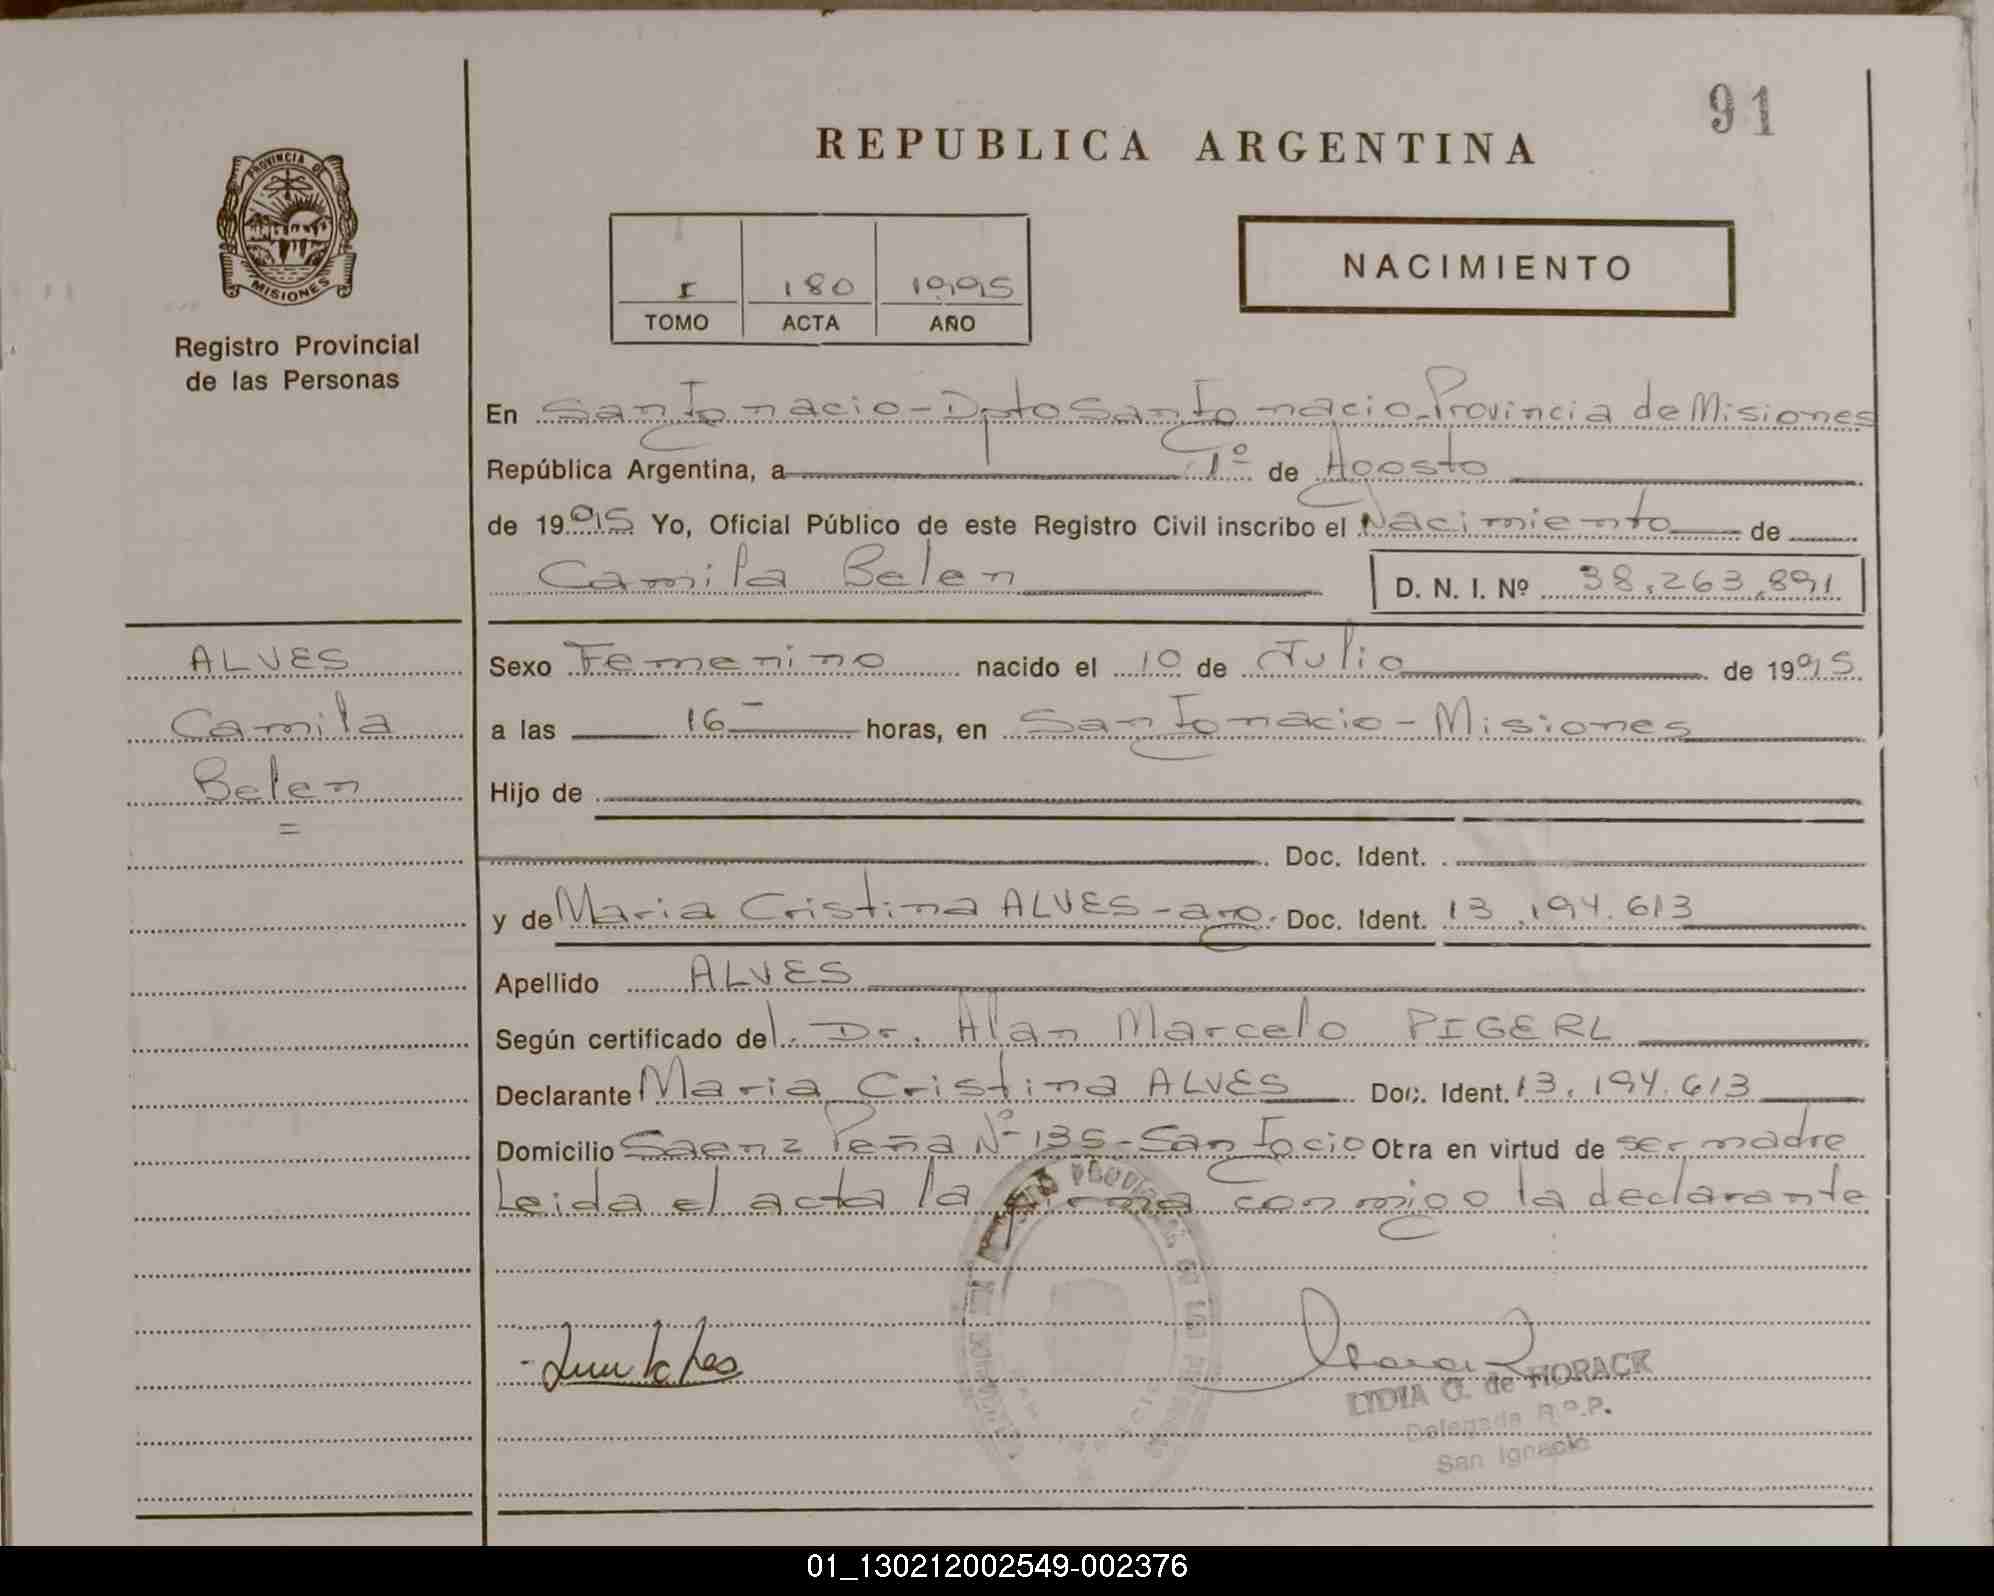 91
REPUBLICA ARGENTINA
PROVINCIA DE
MISIONES
Registro Provincial
de las Personas
NACIMIENTO
I 180 1995
TOMO ACTA AÑO
En San Ignacio - Dpto San Ignacio Provincia de Misiones
República Argentina, a 1º de Agosto
de 1995 Yo, Oficial Público de este Registro Civil inscribo el Nacimiento de
Camila Belen D. N. I. Nº 38.263.891
ALVES
Camila
Belen
=
Sexo Femenino nacido el 10 de Julio de 1995
a las 16 horas, en San Ignacio - Misiones
Hijo de
Doc. Ident.
y de Maria Cristina ALVES - arg. Doc. Ident. 13.194.613
Apellido ALVES
Según certificado del Dr. Alan Marcelo PIGERL
Declarante Maria Cristina ALVES Doc. Ident. 13.194.613
Domicilio Saenz Peña Nº 135 - San Igcio Otra en virtud de ser madre
Leida el acta la firma conmigo la declarante
LYDIA G. de HORACK
Delegada R.P.P.
San Ignacio
01_130212002549-002376